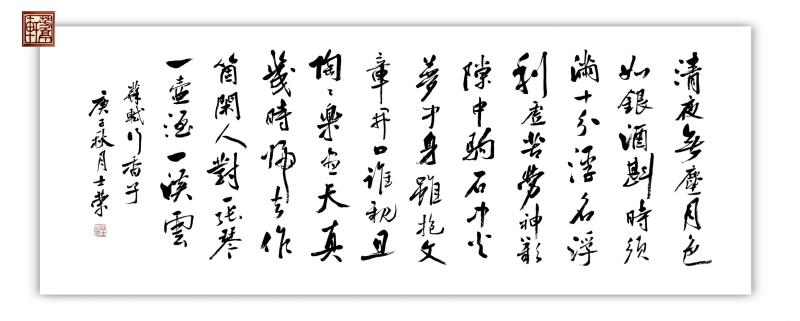 清夜無塵月色
如銀酒斟時須
滿十分浮名浮
利虛苦勞神歎
隙中駒石中火
夢中身雖抱文
章開口誰親且
陶〻樂盡天真
幾時歸去作
箇閑人對一張琴
一壺酒一溪雲
蘇軾行香子
庚子秋月士榮